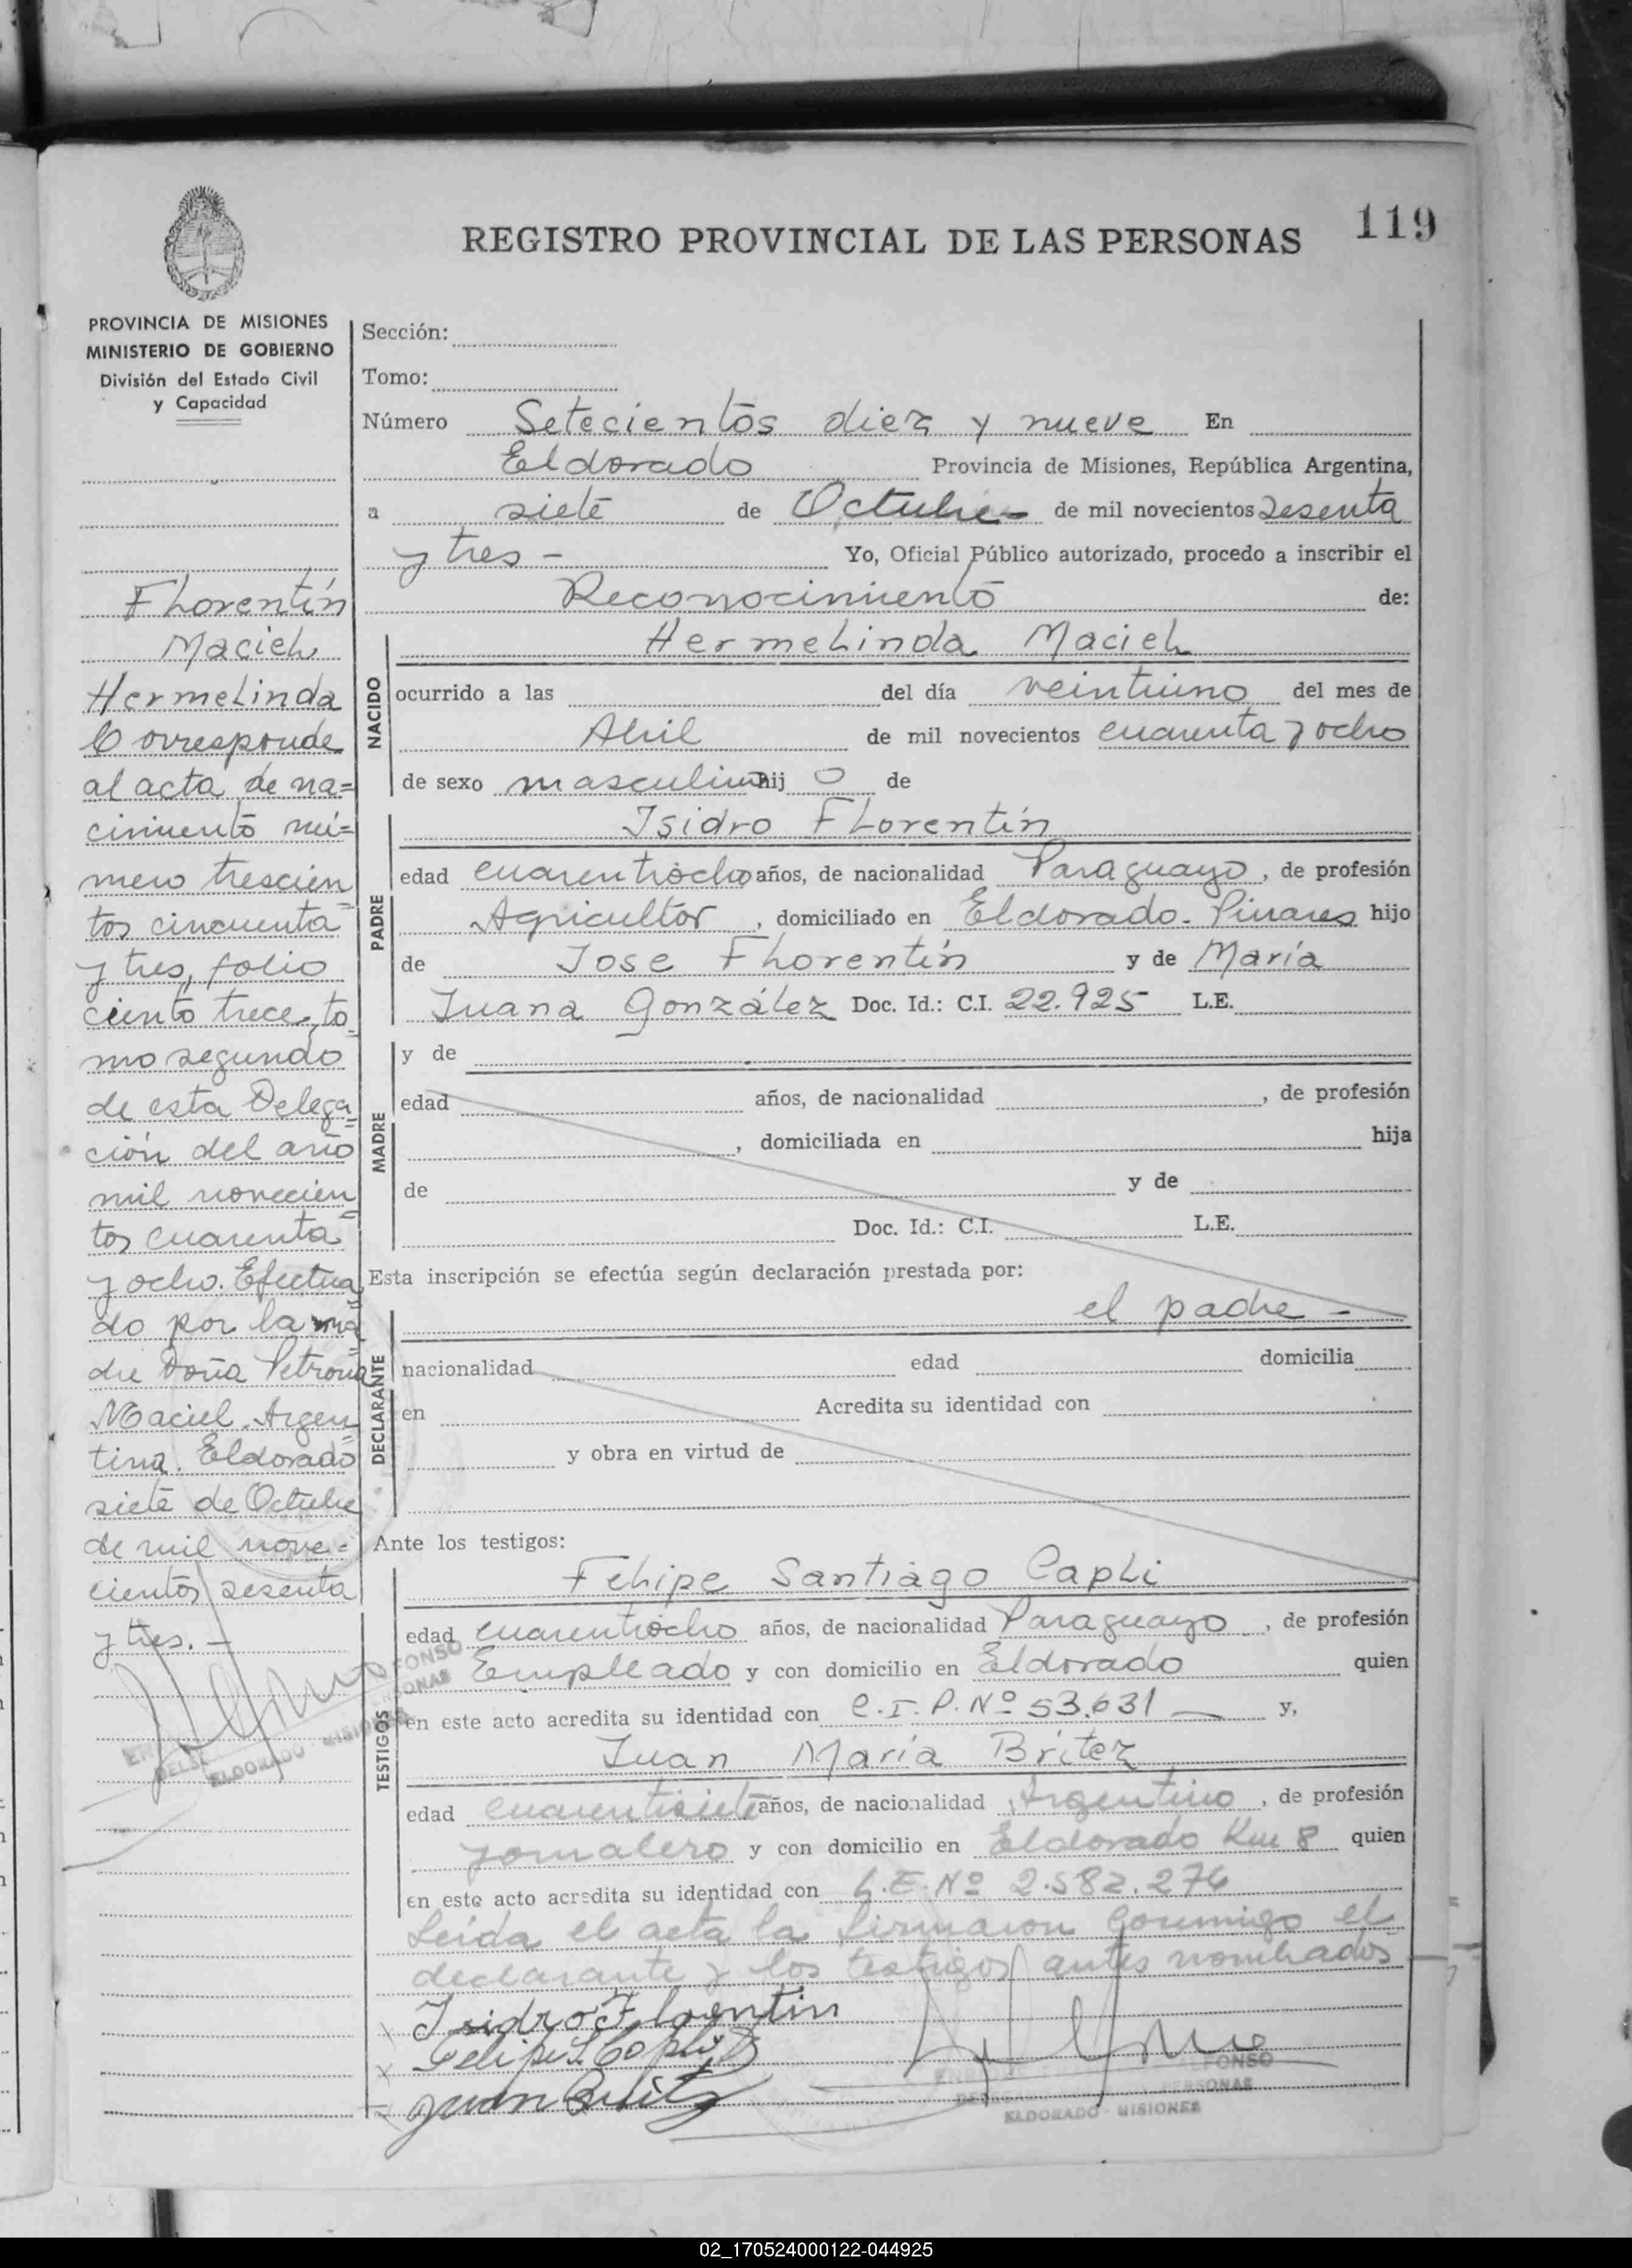 119
REGISTRO PROVINCIAL DE LAS PERSONAS
PROVINCIA DE MISIONES
MINISTERIO DE GOBIERNO
División del Estado Civil
y Capacidad
Florentín
Maciel
Hermelinda
Corresponde
al acta de na=
cimiento nú=
mero trescien
tos cincuenta
y tres, folio
ciento trece, to
mo segundo
de esta Delega
ción del año
mil novecien
tos cuarenta
y ocho. Efectua
do por la ma
dre Doña Petrona
Maciel, Argen
tina. Eldorado
siete de Octubre
de mil nove=
cientos sesenta
y tres.-
ELDORADO - MISIONES
Sección:
Tomo:
Número Setecientos diez y nueve En
Eldorado Provincia de Misiones, República Argentina,
a siete de Octubre- de mil novecientos sesenta
y tres - Yo, Oficial Público autorizado, procedo a inscribir el
Reconocimiento de:
NACIDO
Hermelinda Maciel
ocurrido a las del día veintiuno del mes de
Abril de mil novecientos cuarenta y ocho
de sexo masculino hij o de
PADRE
Isidro Florentín
edad cuarentiocho años, de nacionalidad Paraguayo, de profesión
Agricultor, domiciliado en Eldorado- Pinares hijo
de Jose Florentín y de María
Juana González Doc. Id.: C.I. 22.925 L.E.
MADRE
y de
edad años, de nacionalidad , de profesión
, domiciliada en hija
de y de
Doc. Id.: C.I. L.E.
Esta inscripción se efectúa según declaración prestada por:
el padre -
DECLARANTE
nacionalidad edad domicilia
en Acredita su identidad con
y obra en virtud de
Ante los testigos:
TESTIGOS
Felipe Santiago Capli
edad cuarentiocho años, de nacionalidad Paraguayo, de profesión
Empleado y con domicilio en Eldorado quien
en este acto acredita su identidad con C.I.P.Nº 53.631 y,
Juan María Britez
edad cuarentisiete años, de nacionalidad Argentino, de profesión
Jornalero y con domicilio en Eldorado Km 8 quien
en este acto acredita su identidad con L.E. Nº 2.582.276
Leída el acta la firmaron conmigo el
declarante y los testigos antes nombrados
Isidro Florentin
Felipe S. Capli
Juan Britez
ALFONSO
PERSONAS
ELDORADO - MISIONES
02_170524000122-044925